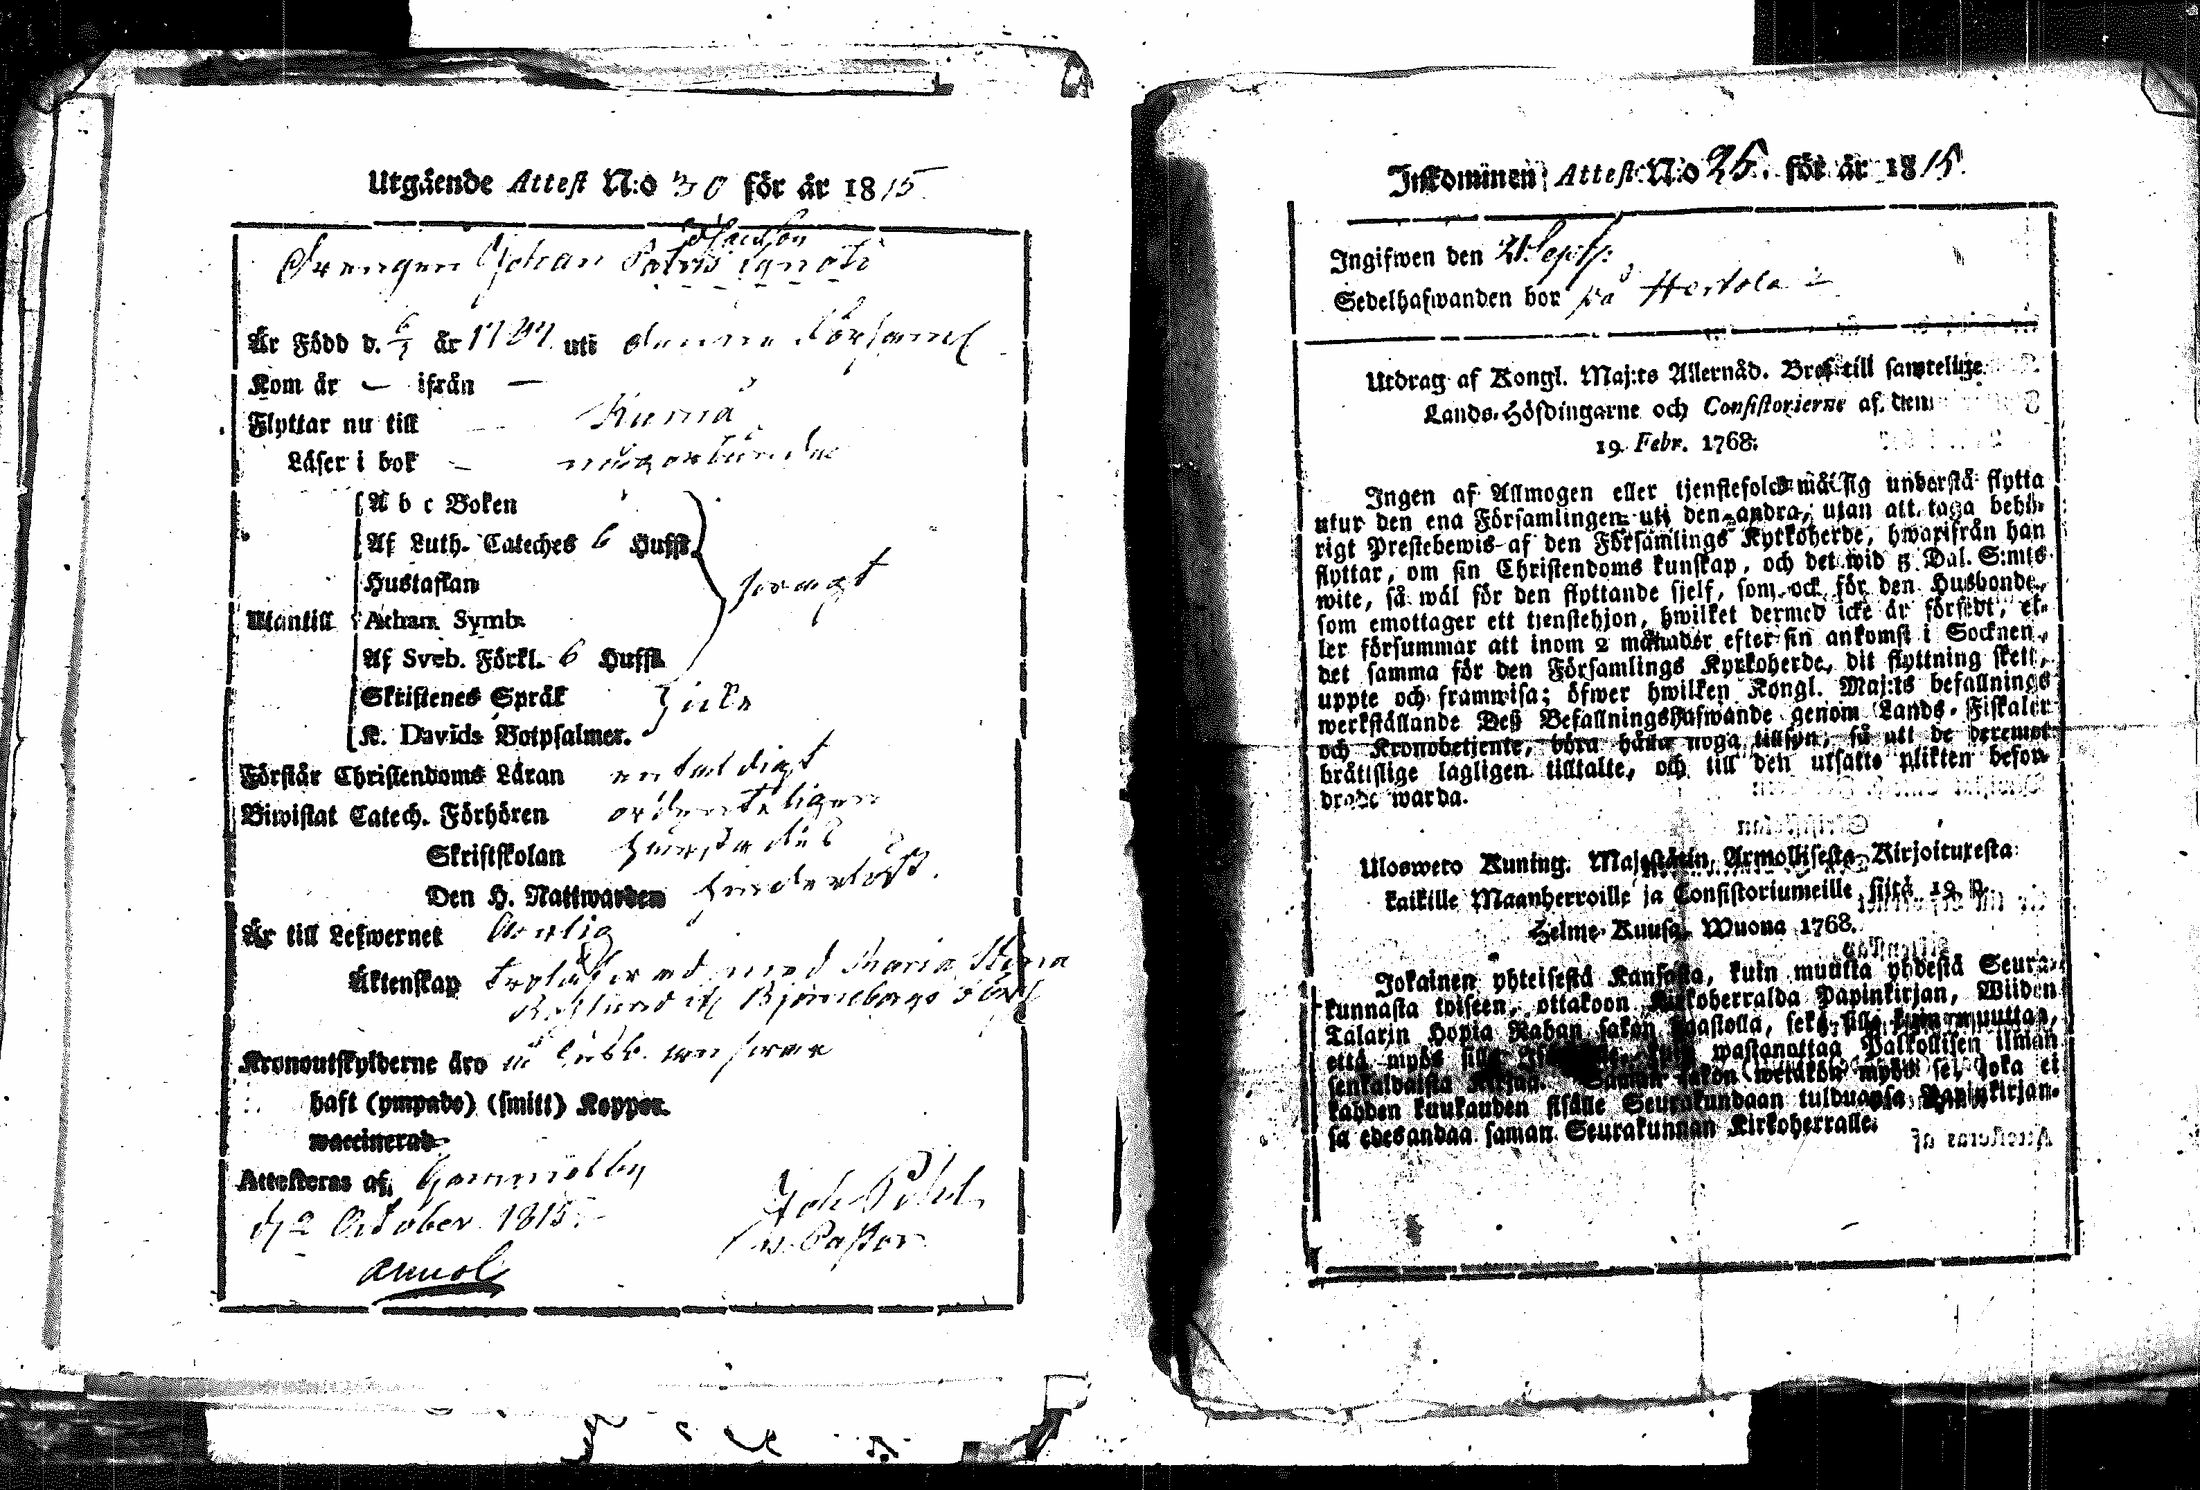 Utgående Attest N:o 30 för år 1815
Drengen Johan Patris ignoti
Är Född d. 6/1 år 1787 uti denna Församl
Kom år — ifrån —
Flyttar nu till — Kumå
Läser i bok —
A b c Boken
Af Luth. Cateches 6 Hufst.
Hustaflan
Utantill Athan. Symb.
svagt
Af Sveb. Förkl. 6 Hufst.
Skriftenes Språk
K. Davids Botpsalmer.
icke
Förstår Christendoms Läran enfaldigt
Biwistat Catech. Förhören ordenteligen
Skriftskolan
Den H. Nattwarden
Är till Lefwernet ärlig
Äktenskap trolofwad med Maria Stina
Björneborgs
Kronoutskylderne äro
haft (ympade) (smitt) Koppor.
waccinerad
Attesteras af, Gammelby
d 2 October 1815.
w. Pastor
Inkommen Attest N:o 25. för år 1815.
Ingifwen den 21 Sept:
Sedelhafwanden bor på Hertola
Utdrag af Kongl. Maj:ts Allernåd. Bref till samtelige
Lands-Höfdingarne och Consistorierne af den
19. Febr. 1768.
Ingen af Allmogen eller tjenstefolck må sig understå flytta
utur den ena Församlingen uti den andra, utan att taga behö-
rigt Prestebewis af den Församlings Kyrkoherde, hwarifrån han
flyttar, om sin Christendoms kunskap, och det wid 5 Dal. S:mts
wite, så wäl för den flyttande sjelf, som ock för den Husbonde,
som emottager ett tienstehjon, hwilket dermed icke är försedt, el-
ler försummar att inom 2 månader efter sin ankomst i Socknen,
det samma för den Församlings Kyrkoherde, dit flyttning skett,
uppte och framwisa; öfwer hwilken Kongl. Maj:ts befallnings
werkställande Deß Befallningshafwande genom Lands-Fiskaler
och Kronobetjente, böra hålla noga tillsyn, så att de deremot
bråttslige lagligen tilltalte, och till den utsatte plikten befor-
drade warda.
Ulosweto Kuning. Majestätin Armollisesta Kirjoituxesta
kaikille Maanherroille ja Consistoriumeille siitä 19 p.
Helme-Kuusa Wuona 1768.
Jokainen yhteisestä Kansasta, kuin muutta yhdestä Seura-
kunnasta toiseen, ottakoon Kirkoherralda Papinkirjan, Wiiden
Talarin Hopia Rahan sakon haastolla, sekä sille kuin muuttaa,
että myös sille kuin wastanottaa Palkollisen ilman
senkaldaista Kirjaa. Saman sakon wetäkön myös se, joka ei
kahden kuukauden sisälle Seurakundaan tulduansa Papinkirjan-
sa edesandaa saman Seurakunnan Kirkoherralle.